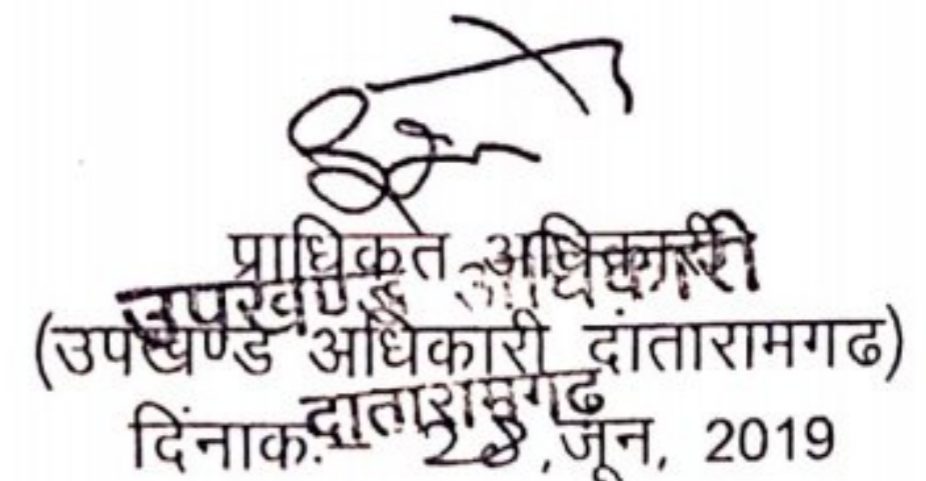 प्राधिकृत अधिकारी
उपखण्ड अधिकारी
(उपखण्ड अधिकारी दांतारामगढ)
दातारामगढ
दिंनाक. 28, जून, 2019